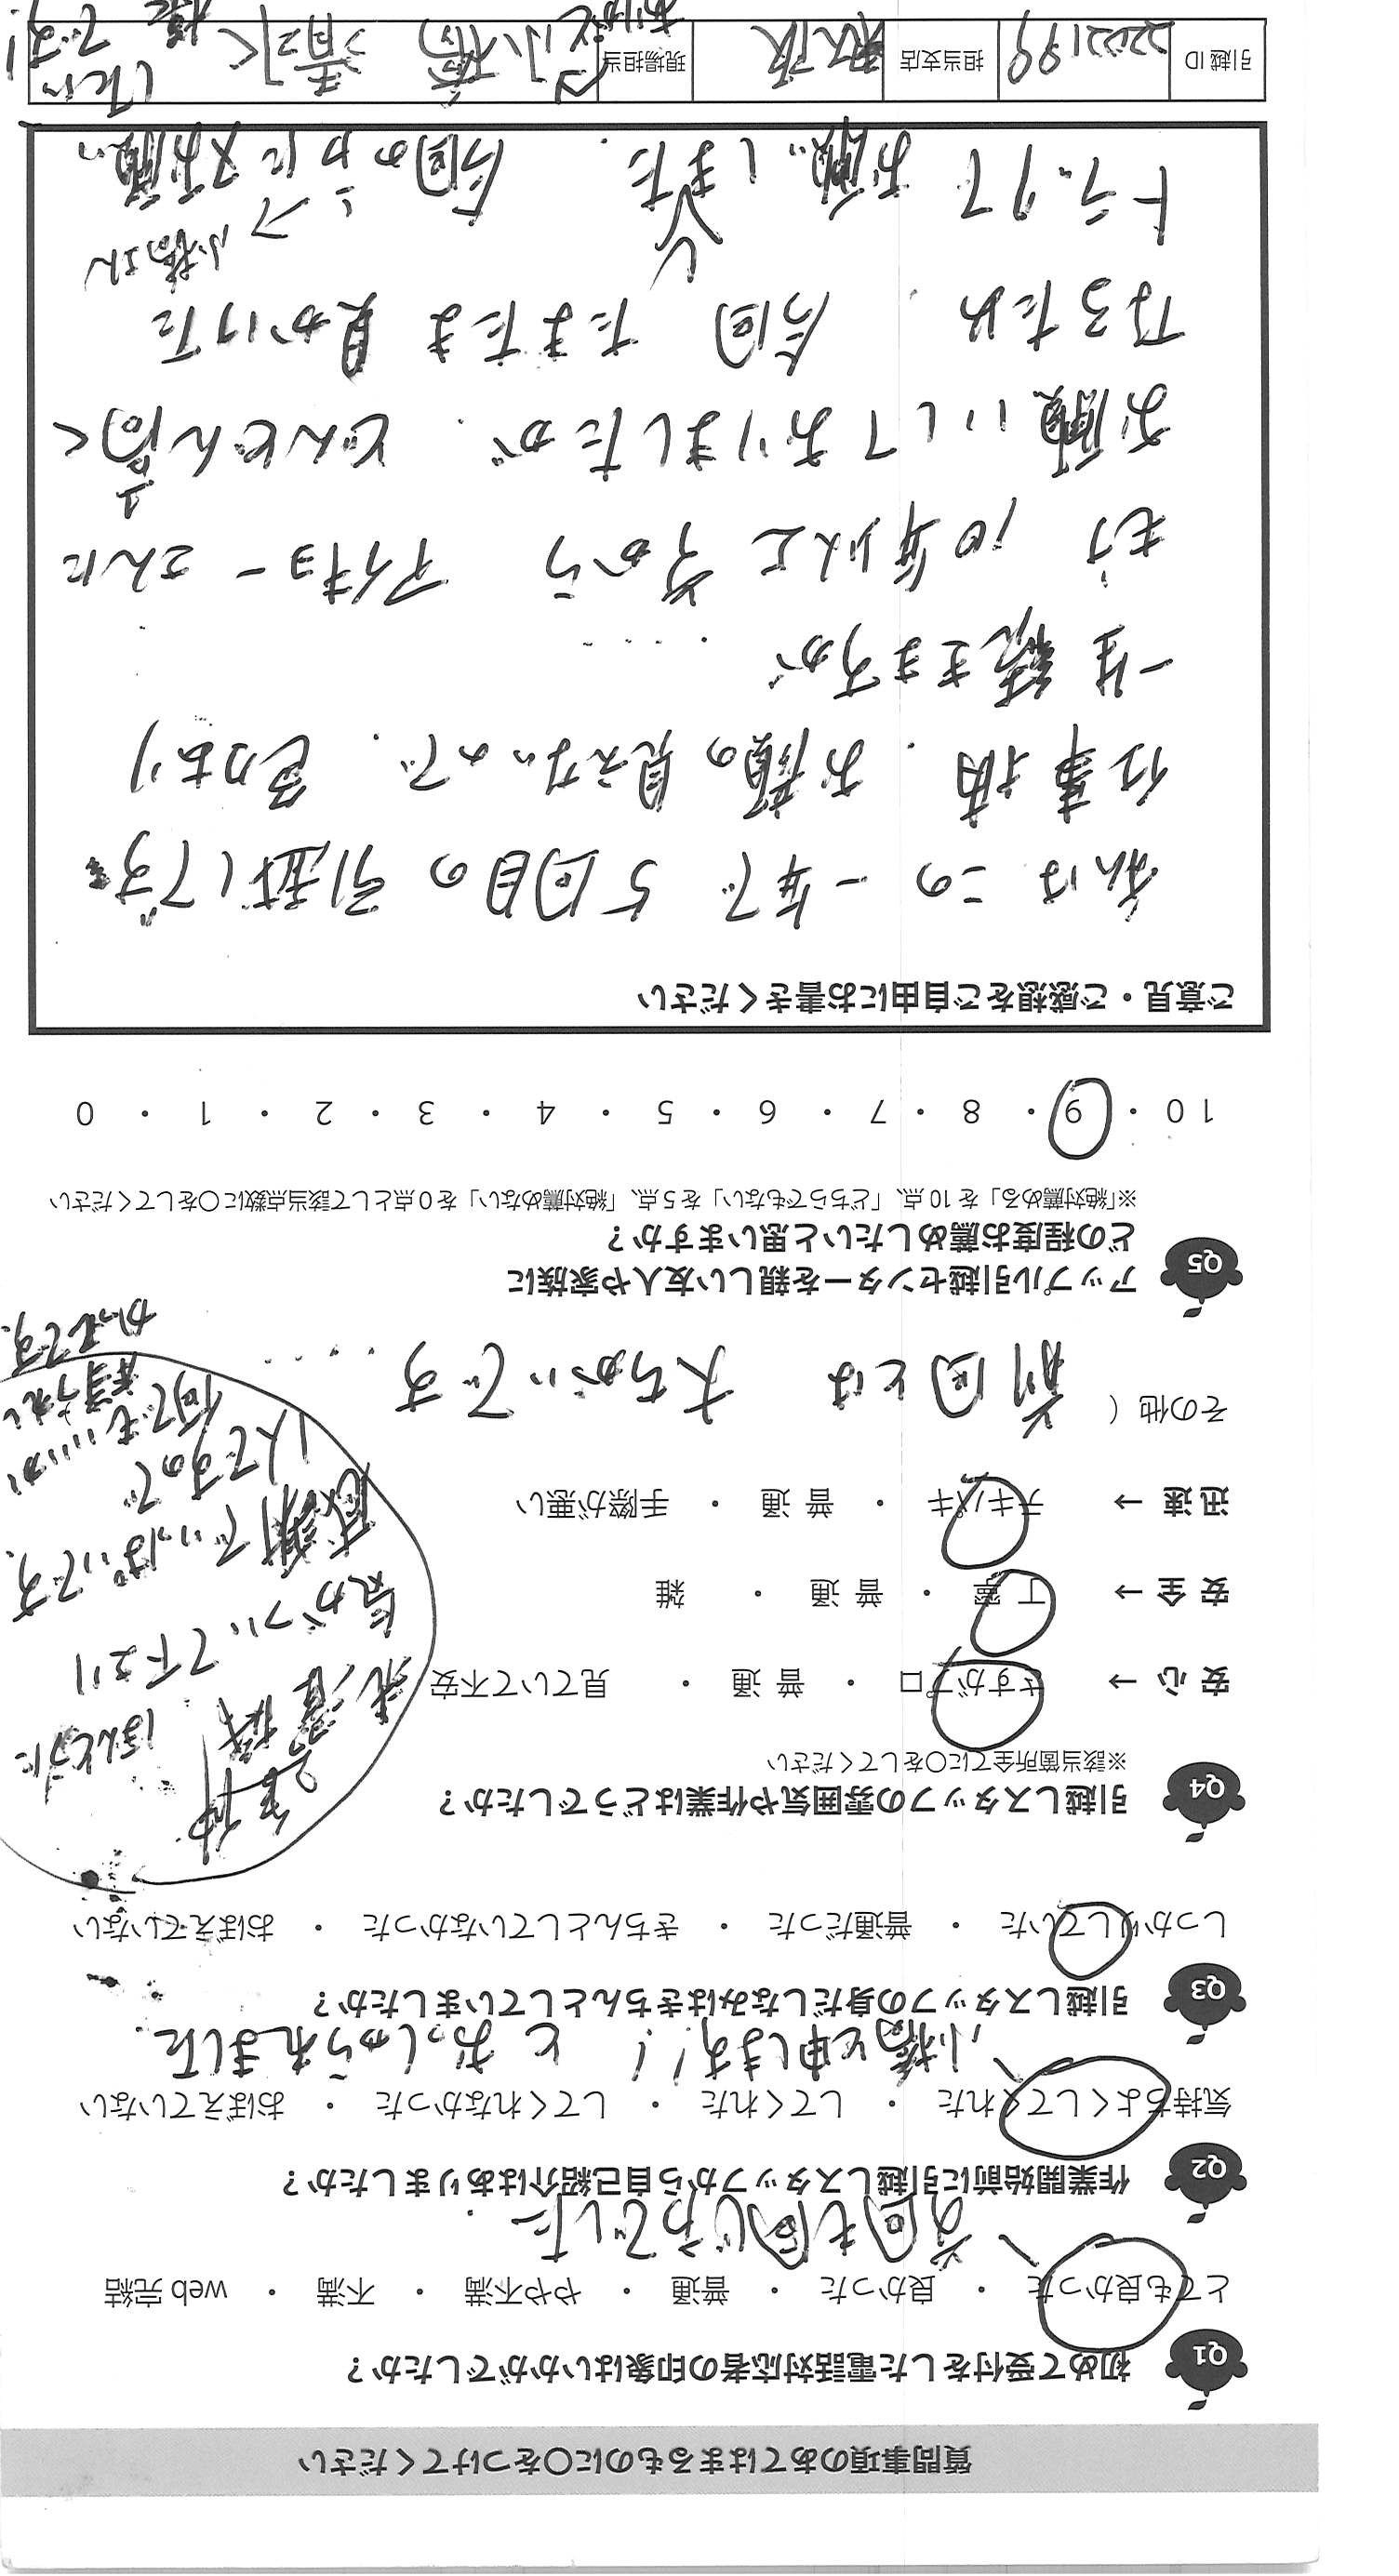 質問事項のあてはまるものに〇をつけてください
Q1 初めて受付をした電話対応者の印象はいかがでしたか？
とても良かった ・ 良かった ・ 普通 ・ やや不満 ・ 不満 ・ web 完結
前回も同じ方でした.
Q2 作業開始前に引越しスタッフから自己紹介はありましたか？
気持ちよくしてくれた ・ してくれた ・ してくれなかった ・ おぼえていない
小橋と申します!! と おっしゃられました.
Q3 引越しスタッフの身だしなみはきちんとしていましたか？
しっかりしていた ・ 普通だった ・ きちんとしていなかった ・ おぼえていない
Q4 引越しスタッフの雰囲気や作業はどうでしたか？
※該当箇所全てに〇をしてください
安 心 → さすがプロ ・ 普 通 ・ 見ていて不安
安 全 → 丁 寧 ・ 普 通 ・ 雑
迅 速 → テキパキ ・ 普 通 ・ 手際が悪い
その他 ( 前回とは 大ちがいです ....
ほんとうに
気がついて下より
感謝でいっぱいです.
1人ですので
何でも
かったです.
Q5 アップル引越センターを親しい友人や家族に
どの程度お薦めしたいと思いますか？
※「絶対薦める」を 10 点、「どちらでもない」を 5 点、「絶対薦めない」を 0 点として該当点数に〇をしてください
10 ・ 9 ・ 8 ・ 7 ・ 6 ・ 5 ・ 4 ・ 3 ・ 2 ・ 1 ・ 0
ご意見・ご感想をご自由にお書きください
私は この 一年で 5回目の 引越しです
仕事柄. お顔の見えないので. 色々あり
一生続きますが ....
もう 10年以上 前から アイキョーさんに
お願いしておりましたが. どんどん高く
なるため. 今回 たまたま 見かけた
トラックで お願いしました. 今回のかにスお願い
小橋さん
引越 ID 2202199 担当支店 大阪 現場担当 小橋 清水 様